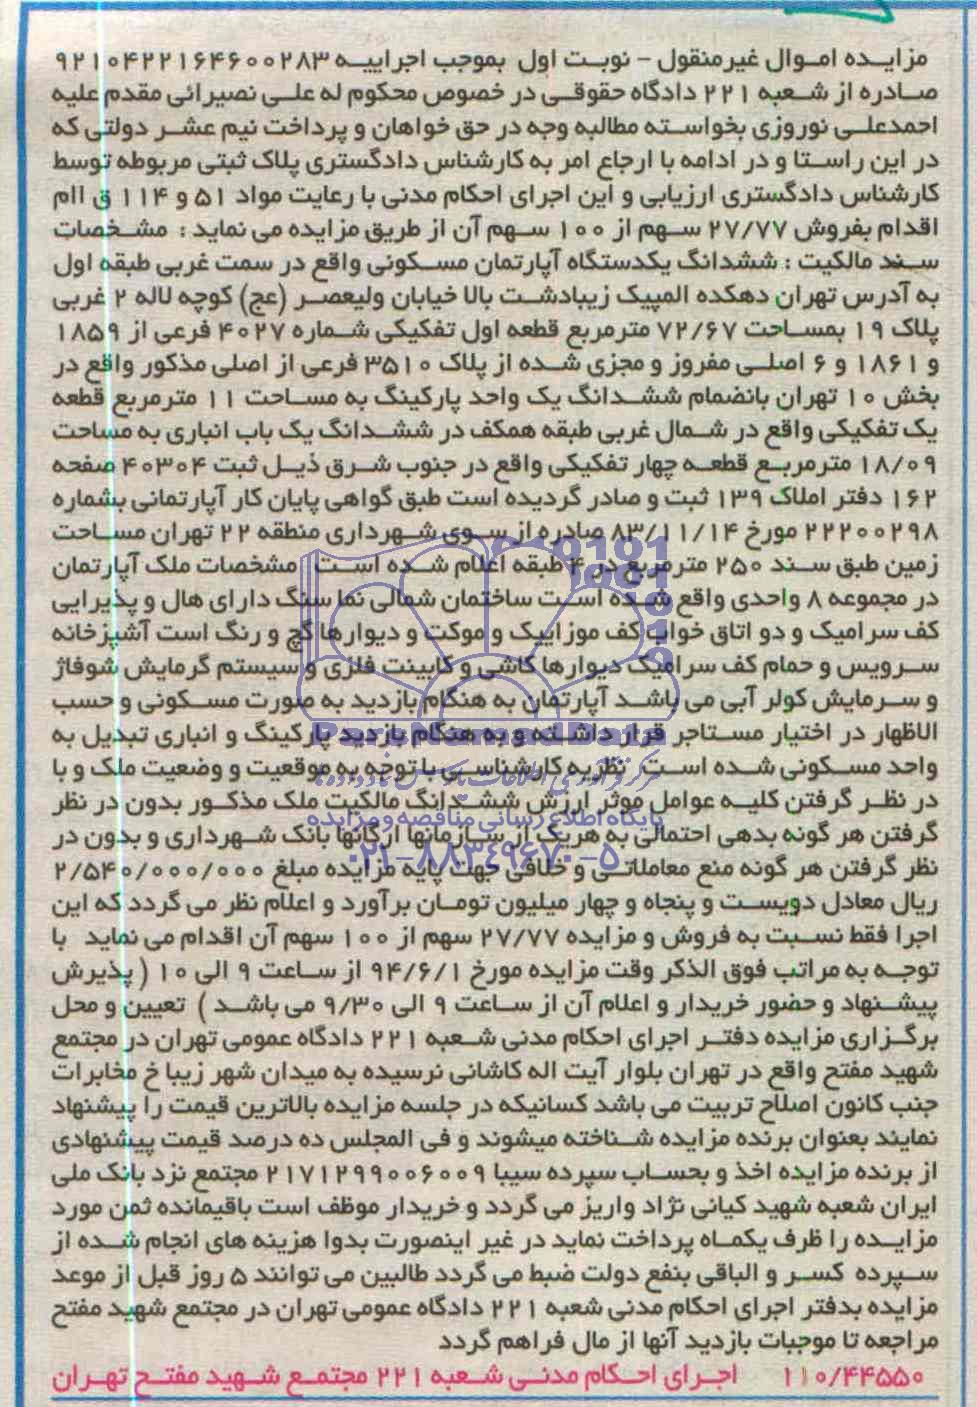 مزایده اموال غیرمنقول - نوبت اول بموجب اجراییه ۹۲۱۰۴۲۲۱۶۴۶۰۰۲۸۳
صادره از شعبه ۲۲۱ دادگاه حقوقی در خصوص محکوم له علی نصیرائی مقدم علیه
احمدعلی نوروزی بخواسته مطالبه وجه در حق خواهان و پرداخت نیم عشر دولتی که
در این راستا و در ادامه با ارجاع امر به کارشناس دادگستری پلاک ثبتی مربوطه توسط
کارشناس دادگستری ارزیابی و این اجرای احکام مدنی با رعایت مواد ۵۱ و ۱۱۴ ق اام
اقدام بفروش ۲۷/۷۷ سهم از ۱۰۰ سهم آن از طریق مزایده می نماید : مشخصات
سند مالکیت : ششدانگ یکدستگاه آپارتمان مسکونی واقع در سمت غربی طبقه اول
به آدرس تهران دهکده المپیک زیبادشت بالا خیابان ولیعصر (عج) کوچه لاله ۲ غربی
پلاک ۱۹ بمساحت ۷۲/۶۷ مترمربع قطعه اول تفکیکی شماره ۴۰۲۷ فرعی از ۱۸۵۹
و ۱۸۶۱ و ۶ اصلی مفروز و مجزی شده از پلاک ۳۵۱۰ فرعی از اصلی مذکور واقع در
بخش ۱۰ تهران بانضمام ششدانگ یک واحد پارکینگ به مساحت ۱۱ مترمربع قطعه
یک تفکیکی واقع در شمال غربی طبقه همکف در ششدانگ یک باب انباری به مساحت
۱۸/۰۹ مترمربع قطعه چهار تفکیکی واقع در جنوب شرق ذیل ثبت ۴۰۳۰۴ صفحه
۱۶۲ دفتر املاک ۱۳۹ ثبت و صادر گردیده است طبق گواهی پایان کار آپارتمانی بشماره
۲۲۲۰۰۲۹۸ مورخ ۸۳/۱۱/۱۴ صادره از سوی شهرداری منطقه ۲۲ تهران مساحت
زمین طبق سند ۲۵۰ مترمربع در ۴ طبقه اعلام شده است مشخصات ملک آپارتمان
در مجموعه ۸ واحدی واقع شده است ساختمان شمالی نما سنگ دارای هال و پذیرایی
کف سرامیک و دو اتاق خواب کف موزاییک و موکت و دیوارها گچ و رنگ است آشپزخانه
سرویس و حمام کف سرامیک دیوارها کاشی و کابینت فلزی و سیستم گرمایش شوفاژ
و سرمایش کولر آبی می باشد آپارتمان به هنگام بازدید به صورت مسکونی و حسب
الاظهار در اختیار مستاجر قرار داشته و به هنگام بازدید پارکینگ و انباری تبدیل به
واحد مسکونی شده است نظریه کارشناسی با توجه به موقعیت و وضعیت ملک و با
در نظر گرفتن کلیه عوامل موثر ارزش ششدانگ مالکیت ملک مذکور بدون در نظر
گرفتن هر گونه بدهی احتمالی به هریک از سازمانها ارگانها بانک شهرداری و بدون در
نظر گرفتن هر گونه منع معاملاتی و خلافی جهت پایه مزایده مبلغ ۲/۵۴۰/۰۰۰/۰۰۰
ریال معادل دویست و پنجاه و چهار میلیون تومان برآورد و اعلام نظر می گردد که این
اجرا فقط نسبت به فروش و مزایده ۲۷/۷۷ سهم از ۱۰۰ سهم آن اقدام می نماید با
توجه به مراتب فوق الذکر وقت مزایده مورخ ۹۴/۶/۱ از ساعت ۹ الی ۱۰ ( پذیرش
پیشنهاد و حضور خریدار و اعلام آن از ساعت ۹ الی ۹/۳۰ می باشد ) تعیین و محل
برگزاری مزایده دفتر اجرای احکام مدنی شعبه ۲۲۱ دادگاه عمومی تهران در مجتمع
شهید مفتح واقع در تهران بلوار آیت اله کاشانی نرسیده به میدان شهر زیبا خ مخابرات
جنب کانون اصلاح تربیت می باشد کسانیکه در جلسه مزایده بالاترین قیمت را پیشنهاد
نمایند بعنوان برنده مزایده شناخته میشوند و فی المجلس ده درصد قیمت پیشنهادی
از برنده مزایده اخذ و بحساب سپرده سیبا ۲۱۷۱۲۹۹۰۰۶۰۰۹ مجتمع نزد بانک ملی
ایران شعبه شهید کیانی نژاد واریز می گردد و خریدار موظف است باقیمانده ثمن مورد
مزایده را ظرف یکماه پرداخت نماید در غیر اینصورت بدوا هزینه های انجام شده از
سپرده کسر و الباقی بنفع دولت ضبط می گردد طالبین می توانند ۵ روز قبل از موعد
مزایده بدفتر اجرای احکام مدنی شعبه ۲۲۱ دادگاه عمومی تهران در مجتمع شهید مفتح
مراجعه تا موجبات بازدید آنها از مال فراهم گردد
۱۱۰/۴۴۵۵۰ اجرای احکام مدنی شعبه ۲۲۱ مجتمع شهید مفتح تهران
ParsNamadData
پایگاه اطلاع رسانی مناقصه و مزایده
۰۲۱-۸۸۳۴۹۶۷۰-۵